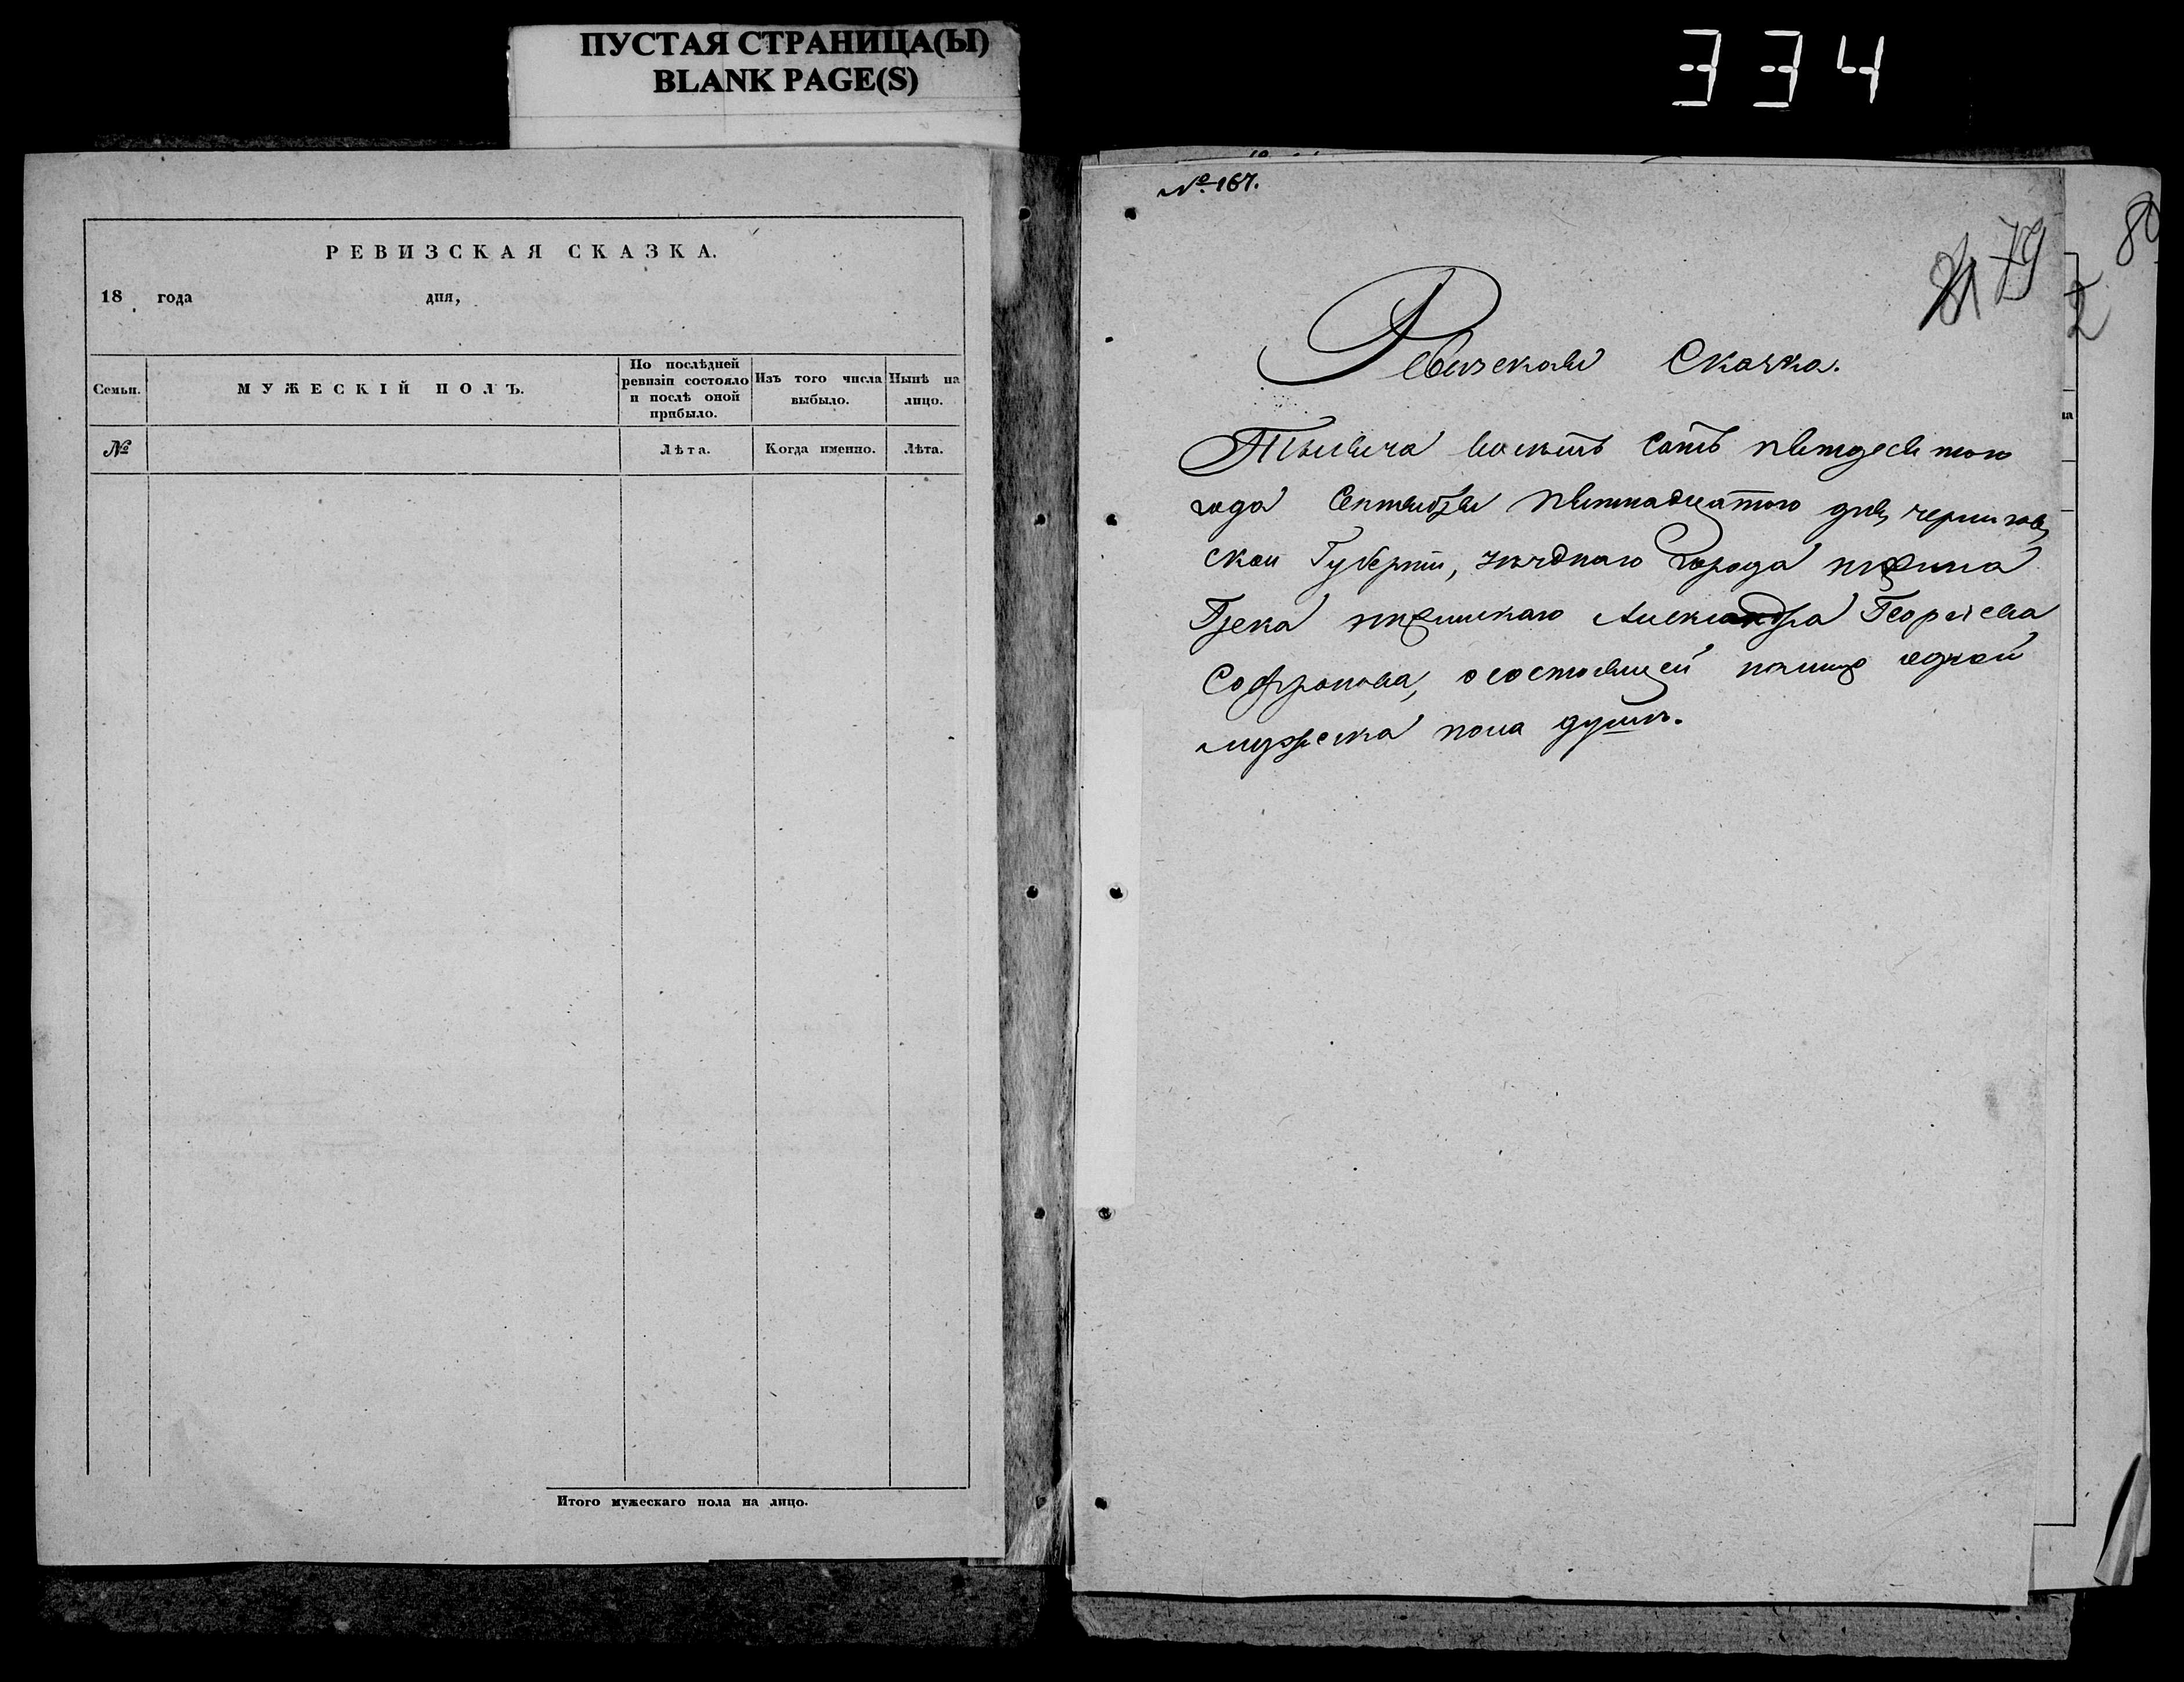 ПУСТАЯ СТРАНИЦА(Ы)
BLANK PAGE(S)
334
РЕВИЗСКАЯ СКАЗКА.
18 года дня,
Семьи.
МУЖЕСКІЙ ПОЛЪ.
По послѣдней
ревизіи состояло
и послѣ оной
прибыло.
Изъ того числа
выбыло.
Нынѣ на
лицо.
№
Лѣта.
Когда именно.
Лѣта.
Итого мужескаго пола на лицо.
№ 167.
79
80
Ревизская Сказка.
Тысяча восемь сотъ пятдесятого
года Сентября пятнадцатого дня, чернигов,
ской Губерніи, уѣзднаго города нѣжина
Грека нѣжинскаго Александра Георгіева
Софронова, о состоящей налицо одной
мужеска пола душѣ.